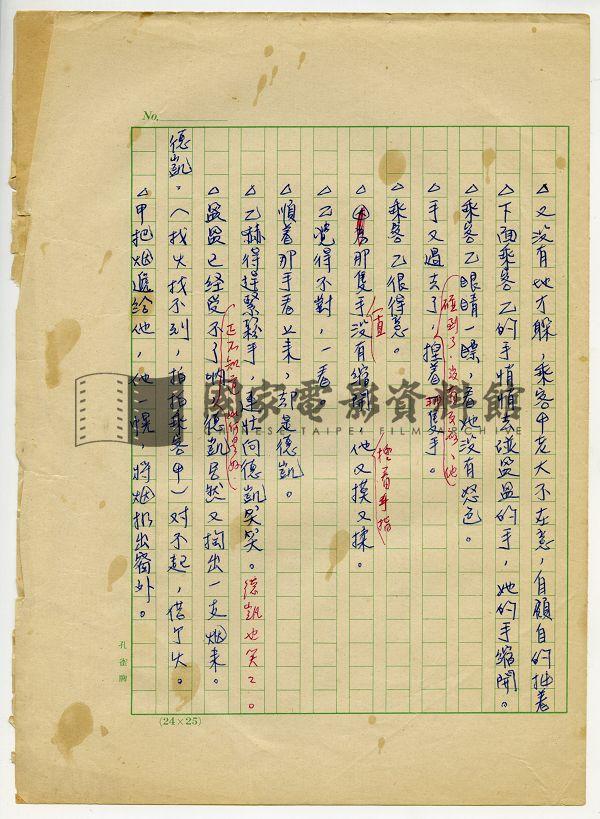 No.
△又沒有地才躲，乘客甲老大不在意，自顧自的抽着
△下面乘客乙的手悄悄去碰盈盈的手，她的手縮開。
△乘客乙眼睛一瞟，看她沒有怒色。
碰到了，沒有反應，他
△手又過去了，捏着那隻手。
△乘客乙很得意。
一直
△那隻手沒有縮開，他又摸又揉。
捏着手指
△乙覺得不對，一看。
△順着那手看上來，却是德凱。
△乙赫得趕緊鬆手，連忙向德凱笑笑。德凱也笑笑。
正不知如何是好
△盈盈已經受不了吶，德凱居然又掏出一支烟來。
德凱。（找火找不到，拍拍乘客甲）對不起，借个火。
△甲把烟遞給他，他一愰，將烟扔出窗外。
孔雀牌
(24×25)
國家電影資料館
TAIPEI FILM ARCHIVE